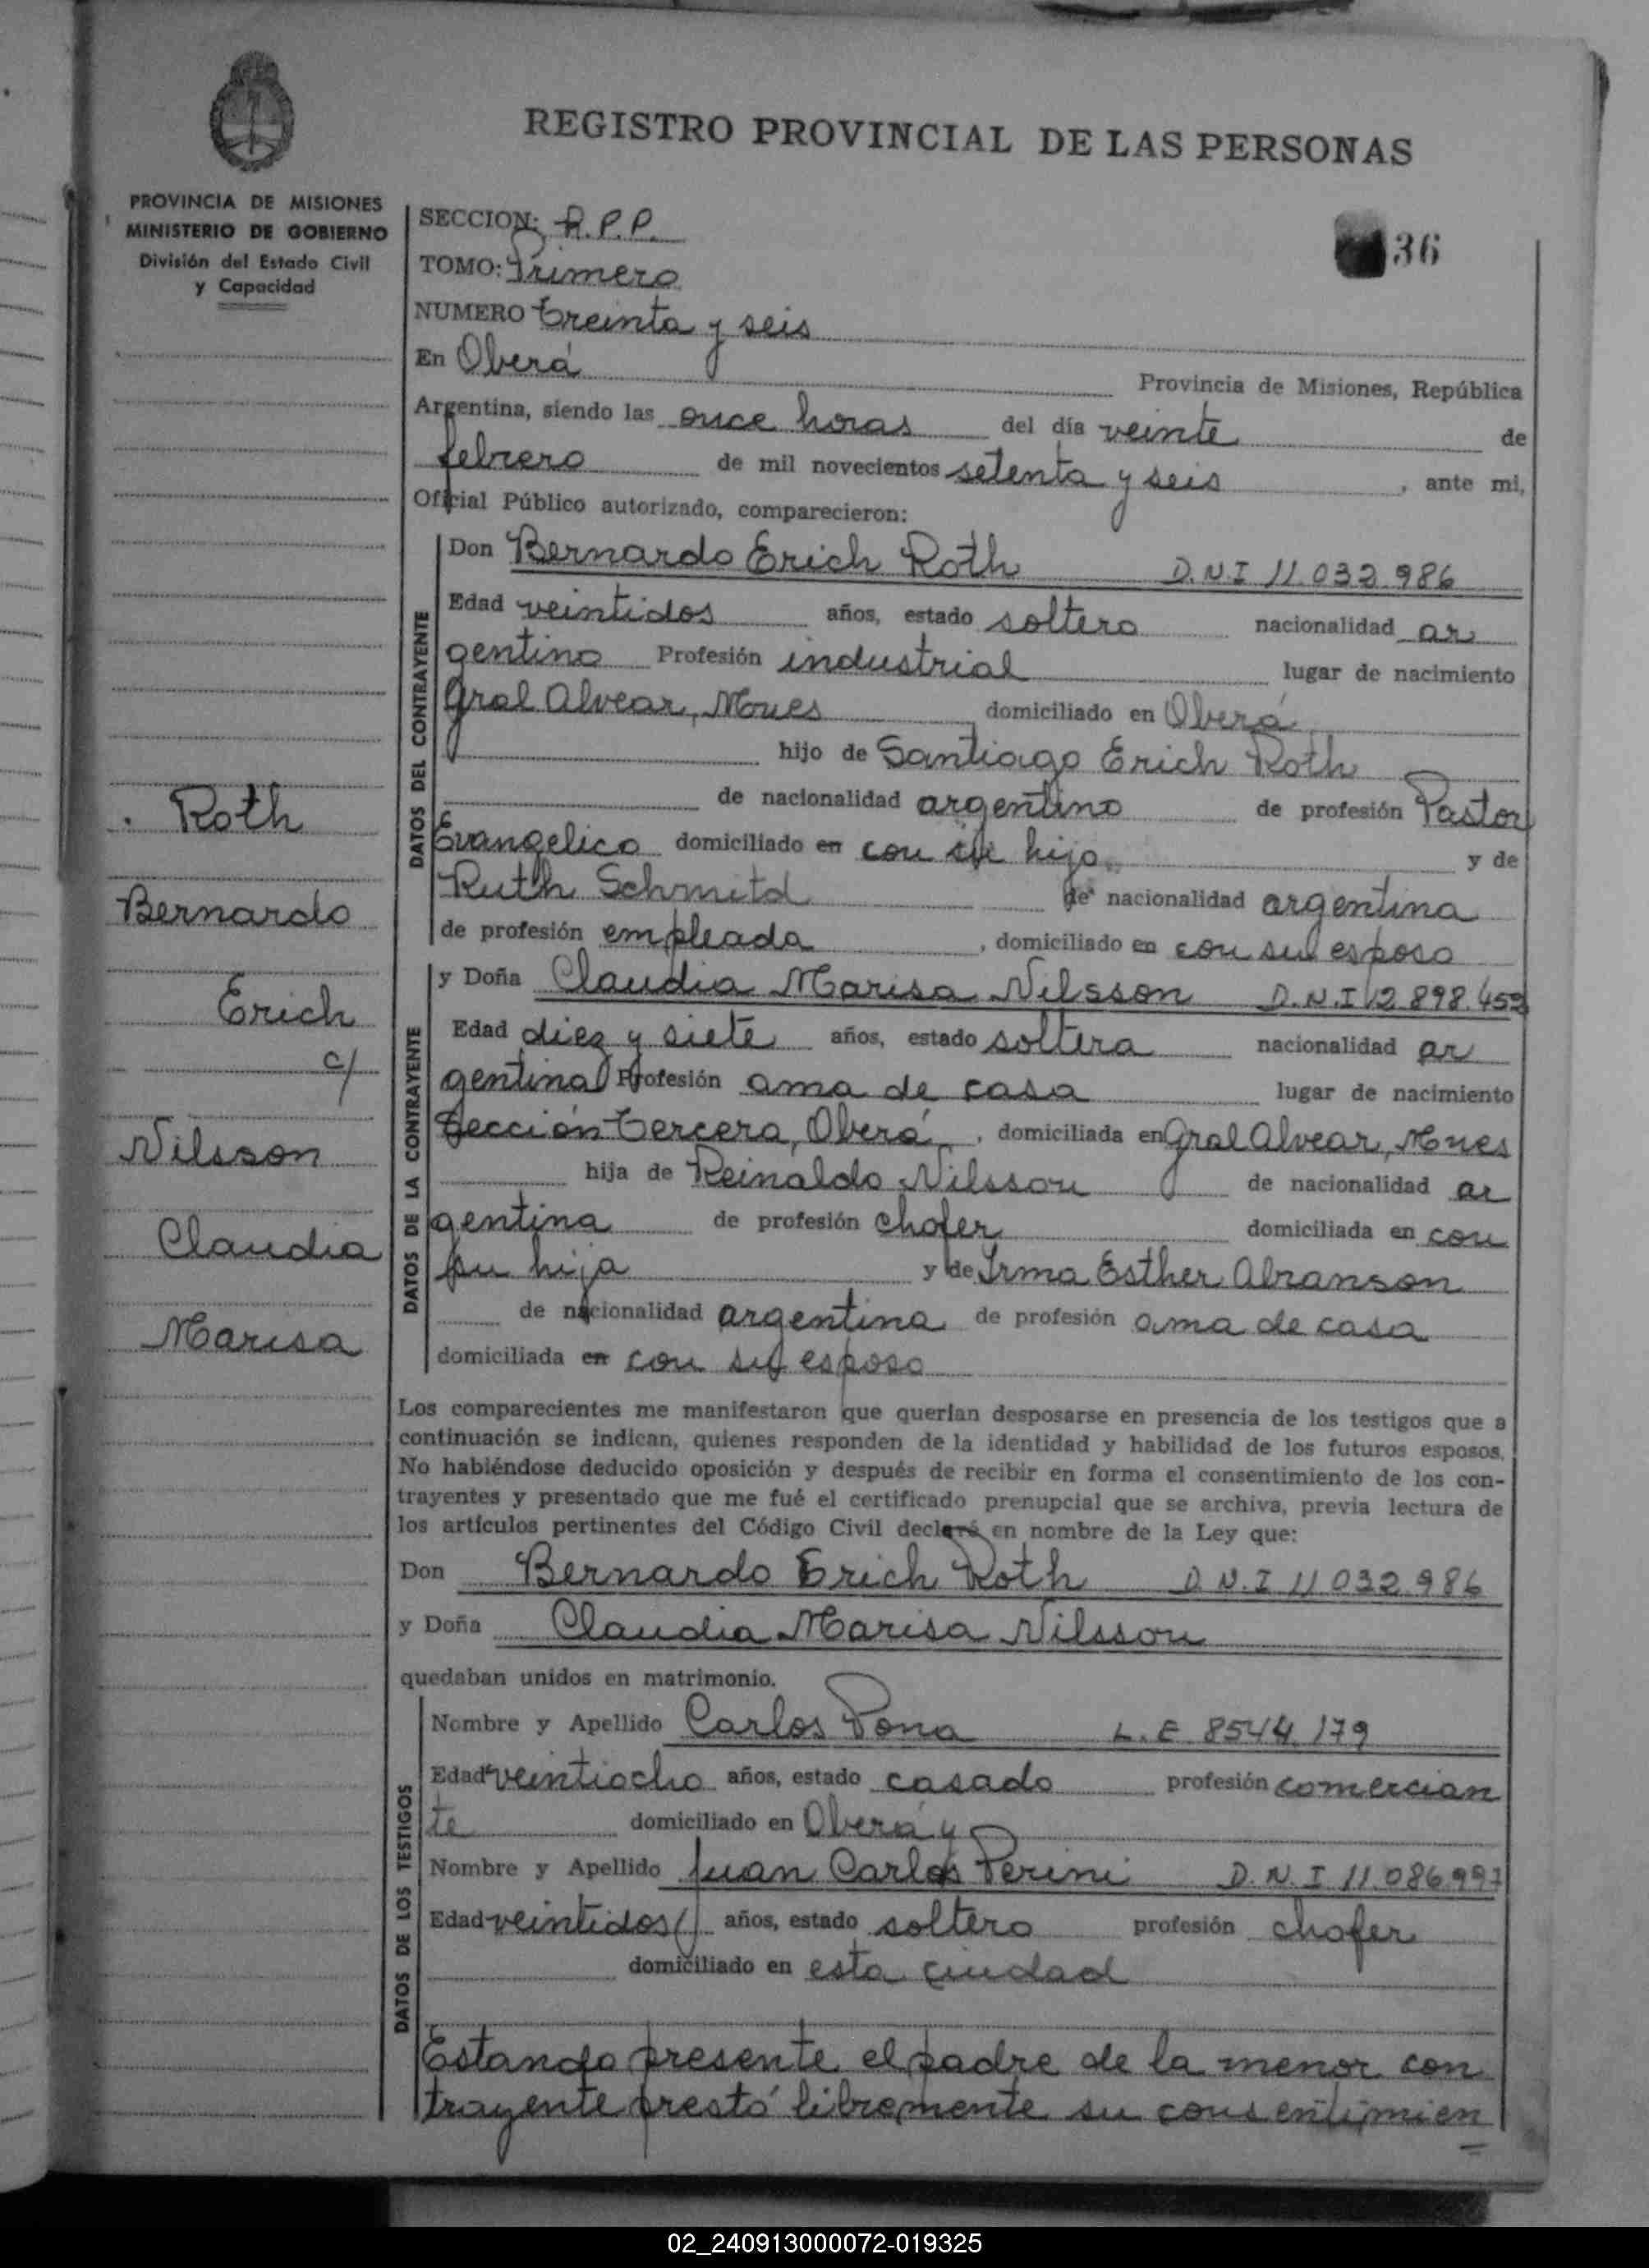 REGISTRO PROVINCIAL DE LAS PERSONAS
PROVINCIA DE MISIONES
MINISTERIO DE GOBIERNO
División del Estado Civil
y Capacidad
36
SECCION: R.P.P.
TOMO: Primero
NUMERO treinta y seis
En Oberá Provincia de Misiones, República
Argentina, siendo las once horas del día veinte de
febrero de mil novecientos setenta y seis, ante mi,
Oficial Público autorizado, comparecieron:
DATOS DEL CONTRAYENTE
Don Bernardo Erich Roth D.N.I 11.032.986
Edad veintidos años, estado soltero nacionalidad ar
gentino Profesión industrial lugar de nacimiento
Gral Alvear, Mnes domiciliado en Oberá
hijo de Santiago Erich Roth
de nacionalidad argentino de profesión Pastor
Evangelico domiciliado en con su hijo y de
Ruth Schmitd de nacionalidad argentina
de profesión empleada, domiciliado en con su esposo
DATOS DE LA CONTRAYENTE
y Doña Claudia Marisa Nilsson D.N.I 12.898.459
Edad diez y siete años, estado soltera nacionalidad ar
gentina Profesión ama de casa lugar de nacimiento
Sección tercera, Oberá, domiciliada en Gral Alvear, Mnes
hija de Reinaldo Nilsson de nacionalidad ar
gentina de profesión chofer domiciliada en con
su hija y de Irma Esther Abranson
de nacionalidad argentina de profesión ama de casa
domiciliada en con su esposo
Roth
Bernardo
Erich
c/
Nilsson
Claudia
Marisa
Los comparecientes me manifestaron que querían desposarse en presencia de los testigos que a
continuación se indican, quienes responden de la identidad y habilidad de los futuros esposos.
No habiéndose deducido oposición y después de recibir en forma el consentimiento de los con-
trayentes y presentado que me fué el certificado prenupcial que se archiva, previa lectura de
los artículos pertinentes del Código Civil declaré en nombre de la Ley que:
Don Bernardo Erich Roth D.N.I 11.032.986
y Doña Claudia Marisa Nilsson
quedaban unidos en matrimonio.
DATOS DE LOS TESTIGOS
Nombre y Apellido Carlos Pona L.E 8544.179
Edad veintiocho años, estado casado profesión comercian
te domiciliado en Oberá y
Nombre y Apellido Juan Carlos Perini D.N.I 11.086.997
Edad veintidos años, estado soltero profesión chofer
domiciliado en esta ciudad
Estando presente el padre de la menor con
trayente prestó libremente su consentimien
=
02_240913000072-019325